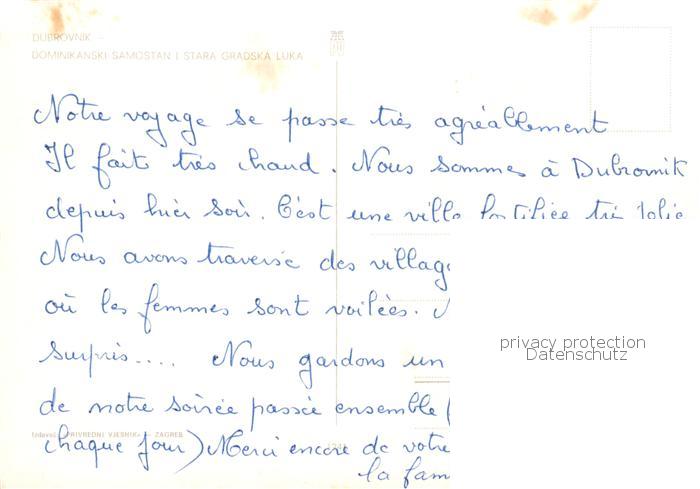 DUBROVNIK –
DOMINIKANSKI SAMOSTAN I STARA GRADSKA LUKA
Notre voyage se passe très agréablement
Il fait très chaud. Nous sommes à Dubrovnik
depuis hier soir. C'est une ville fortifiée très jolie
Nous avons traversé des villag
où les femmes sont voilées.
surpris.... Nous gardons un
de notre soirée passée ensemble (
chaque jour) Merci encore de votre
la fam
Izdavač: PRIVREDNI VJESNIK – ZAGREB
privacy protection
Datenschutz